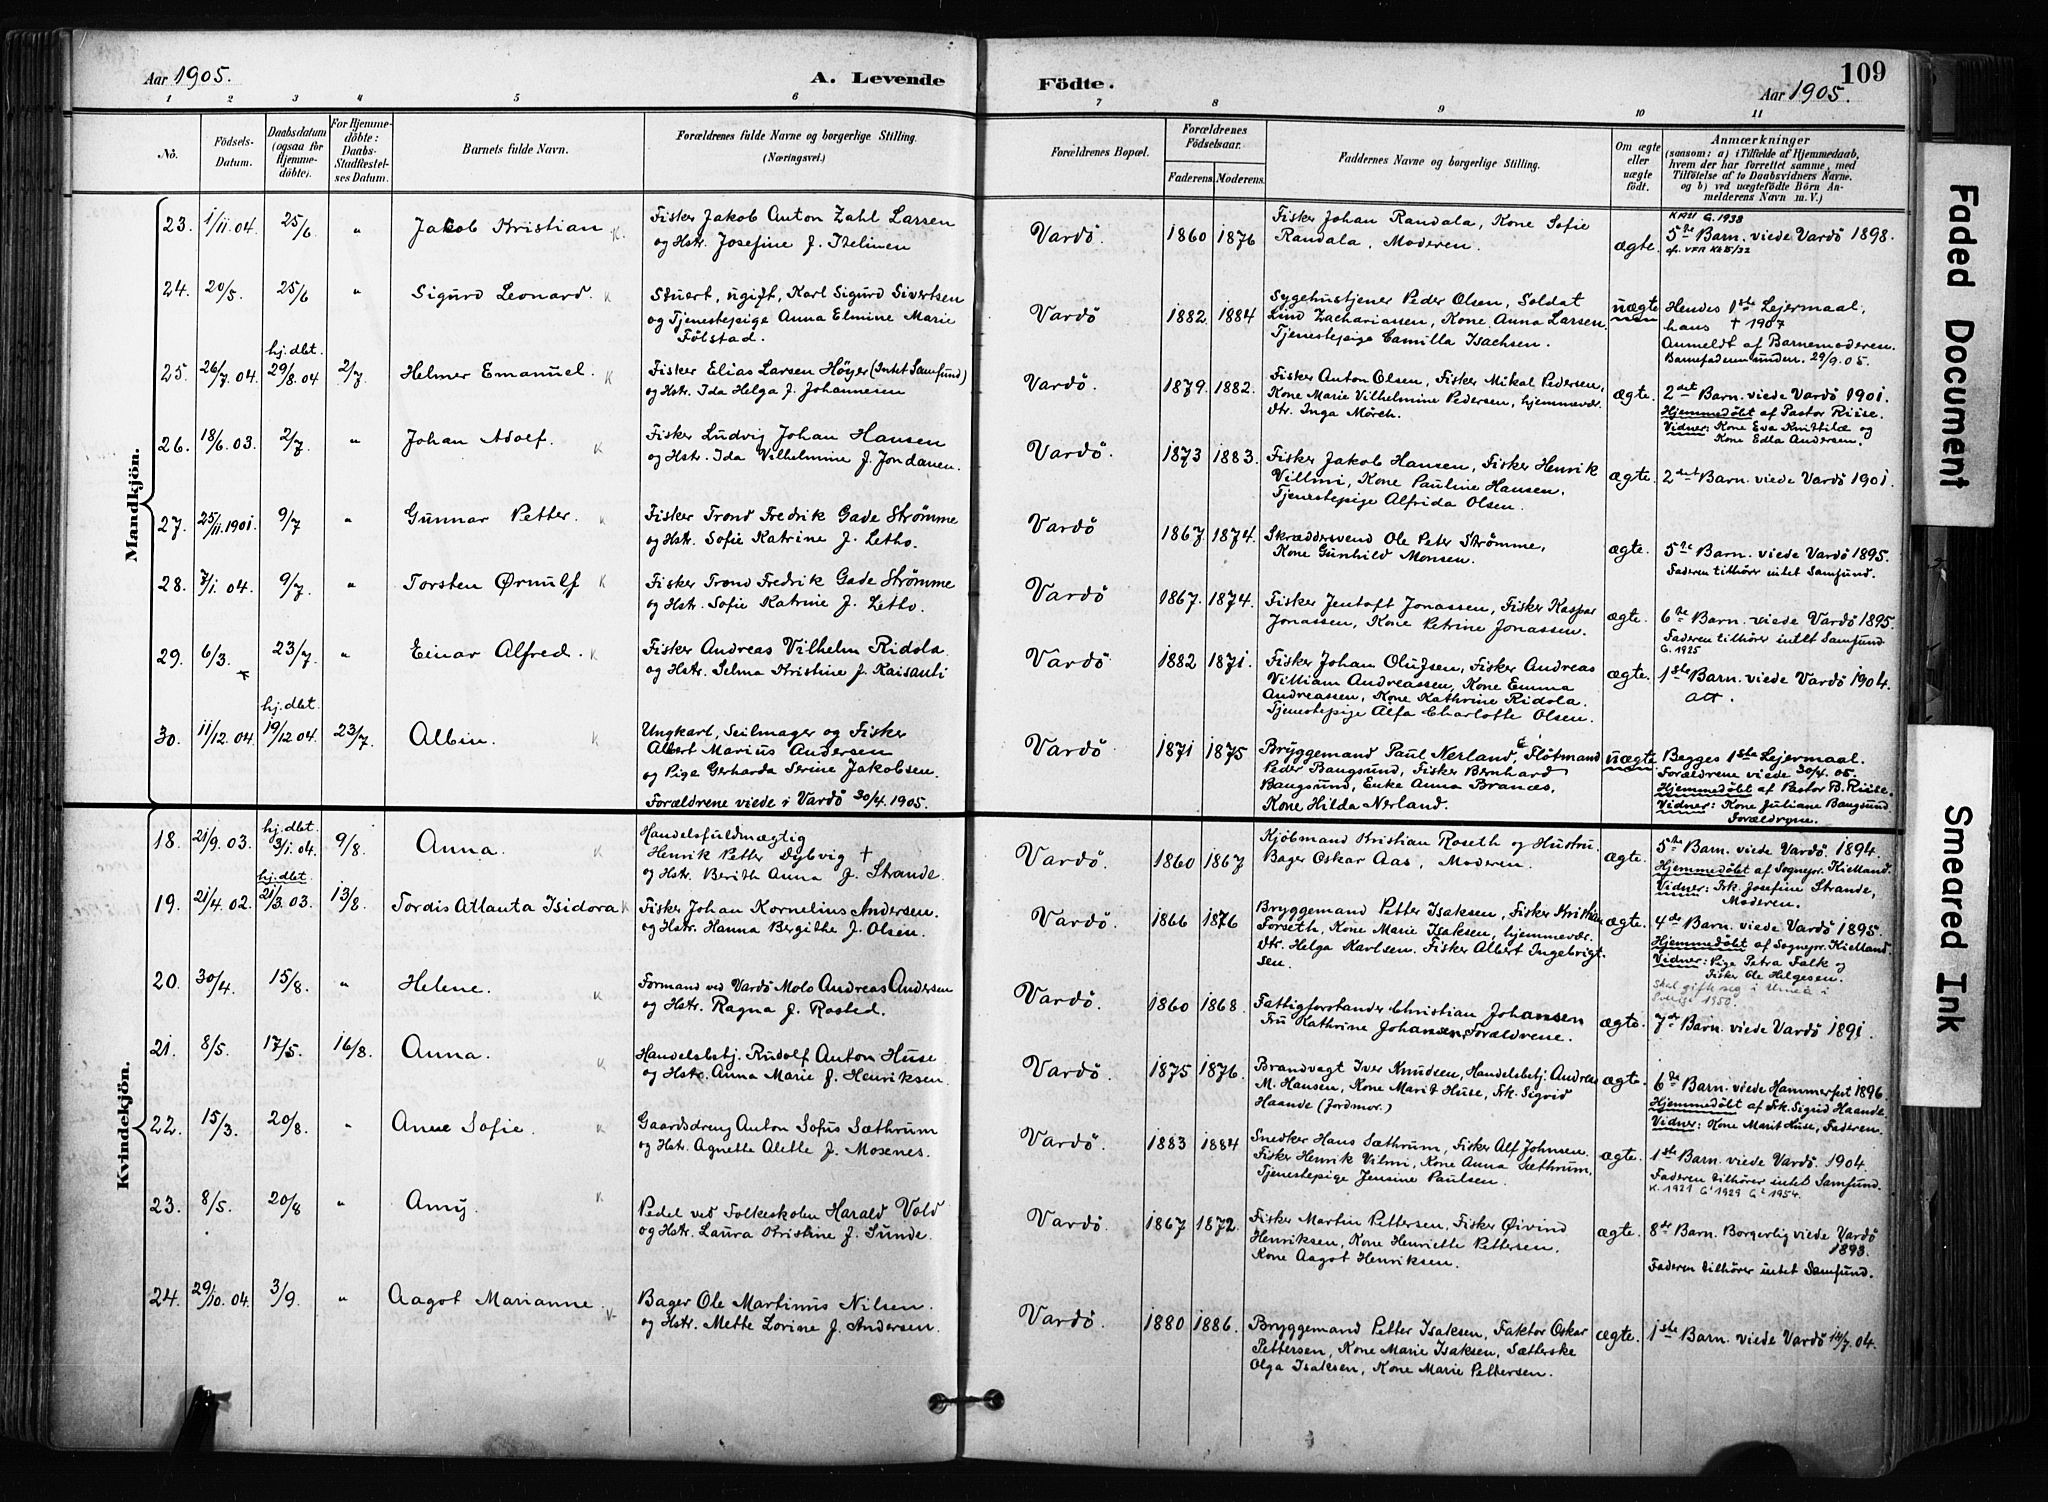 Aar 1905.
A. Levende
Födte.
109
Aar 1905.
1 2 3 4 5 6 7 8 9 10 11
No.
Födsels-Datum.
Daabsdatum (ogsaa for Hjemme-döbte).
For Hjemme-döbte: Daabs-Stadfæstel-ses Datum.
Barnets fulde Navn.
Forældrenes fulde Navne og borgerlige Stilling.
(Næringsvei.)
Forældrenes Bopæl.
Forældrenes Födselsaar.
Faderens. Moderens.
Faddernes Navne og borgerlige Stilling.
Om ægte eller uægte födt.
Anmærkninger
(saasom: a) i Tilfælde af Hjemmedaab, hvem der har forrettet samme, med Tilföielse af to Daabsvidners Navne. og b) ved uægtefödte Börn An-melderens Navn m. V.)
Mandkjön.
23. 1/11 04. 25/6 " Jakob Kristian K
Fisker Jakob Anton Zahl Larsen
og Hstr. Josefine f. Itelinen
Vardö. 1860 1876
Fisker Johan Randala, Kone Sofie
Randala, Moderen.
ægte.
G. 1938
5te Barn. viede Vardö 1898.
24. 20/5. 25/6 " Sigurd Leonard. K
Stuert, ugift, Karl Sigurd Sivertsen
og Tjenestepige Anna Elmine Marie
Fölstad.
Vardö 1882 1884
Sygehustjener Peder Olsen, Soldat
Lind Zachariassen, Kone Anna Larsen,
Tjenestepige Camilla Isachsen.
uægte
Hendes 1ste Lejermaal,
hans † 1907
Anmeldt af Barnemoderen.
Barnefaderen underr. 29/9.05.
25. 26/7.04. hj.dbt. 29/8.04 2/7 Helmer Emanuel. K
Fisker Elias Larsen Höyer (Intet Samfund)
og Hstr. Ida Helga f. Johannesen
Vardö. 1879. 1882.
Fisker Anton Olsen, Fisker Mikal Pedersen,
Kone Marie Vilhelmine Pedersen, hjemmevær.
Dtr. Inga Mörch.
ægte.
2det Barn. viede Vardö 1901.
Hjemmedöbt af Pastor Riise.
Vidner: Kone Eva Knittilæ og
Kone Edla Andersen.
26. 18/6.03. 2/7. " Johan Adolf. K
Fisker Ludvig Johan Hansen
og Hstr. Ida Vilhelmine f. Jordanen.
Vardö. 1873 1883.
Fisker Jakob Hansen, Fisker Henrik
Villmi, Kone Pauline Hansen.
Tjenestepige Alfrida Olsen.
ægte.
2det Barn. viede Vardö 1901.
27. 25/11.1901. 9/7 " Gunnar Petter. K
Fisker Trond Fredrik Gade Strömme
og Hstr. Sofie Katrine f. Letho.
Vardö 1867. 1874.
Skræddersvend Ole Peter Strömme,
Kone Gunhild Monsen.
ægte.
5te Barn. viede Vardö 1895.
Faderen tilhörer intet Samfund.
28. 7/1.04. 9/7. " Torsten Ørnulf K
Fisker Trond Fredrik Gade Strömme
og Hstr. Sofie Katrine f. Letho.
Vardö 1867. 1874.
Fisker Jentoft Jonassen, Fisker Kaspar
Jonassen, Kone Petrine Jonassen.
ægte.
6te Barn. viede Vardö 1895.
Faderen tilhörer intet Samfund
G. 1925
29. 6/3. 23/7. " Einar Alfred. K
Fisker Andreas Vilhelm Ridola
og Hstr. Selma Kristine f. Kaisanti
Vardö 1882 1871.
Fisker Johan Olufsen, Fisker Andreas
Villiam Andreassen, Kone Emma
Andreassen, Kone Kathrine Ridola.
Tjenestepige Alfa Charlotte Olsen.
ægte.
1ste Barn. viede Vardö 1904.
30. 11/12.04. hj.dbt. 19/12 04. 23/7. Albin. K
Ungkarl, Seilmager og Fisker
Albert Marius Andersen
og Pige Gerharda Serine Jakobsen.
Forældrene viede i Vardö 30/4.1905.
Vardö 1871 1875
Bryggemand Paul Nerland, Flötmand
Peder Bangsund, Fisker Bernhard
Bangsund, Enke Anna Brances,
Kone Hilda Nerland.
uægte
Begges 1ste Lejermaal.
Forældrene viede 30/4. 05.
Hjemmedöbt af Pastor B. Riise.
Vidner: Kone Juliane Bangsund
Forældrene.
Kvindekjön.
18. 21/9.03. hj.dbt. 3/1.04. 9/8. Anna. K
Handelsfuldmægtig
Henrik Petter Dybvig †
og Hstr. Berith Anna f. Strande.
Vardö. 1860 1867
Kjöbmand Kristian Roseth og Hustru.
Bager Oskar Aas, Moderen.
ægte.
5te Barn. viede Vardö. 1894.
Hjemmedöbt af Sognepr. Kielland.
Vidner: Frk. Josefine Strande,
Moderen.
19. 21/4.02. hj.dbt. 21/3.03. 13/8. Tordis Atlanta Isidora K
Fisker Johan Kornelius Andersen.
og Hstr. Hanna Bergithe f. Olsen.
Vardö. 1866 1876
Bryggemand Petter Isaksen, Fisker Kristian
Forseth, Kone Marie Isaksen, hjemmevær.
Dtr. Helga Karlsen. Fisker Albert Ingebrigt-
sen.
ægte.
4de Barn. viede Vardö 1895.
Hjemmedöbt af Sognepr. Kielland.
Vidner: Pige Petra Falk og
Fisker Ole Helgesen.
20. 30/4. 15/8. " Helene. K
Formand ved Vardö Molo Andreas Andersen
og Hstr. Ragna f. Rosted.
Vardö. 1860 1868.
Fattigforstander Christian Johansen
Fru Kathrine Johansen, Forældrene.
ægte.
Sked gifte seg i Umeå i
Sverige 1950.
7de Barn. viede Vardö 1891.
21. 8/5. 17/5. 16/8. Anna. K
Handelsbetj. Rudolf Anton Huse
og Hstr. Anna Marie f. Henriksen.
Vardö. 1875 1876.
Brandvagt Iver Knudsen, Handelsbetj. Andreas
M. Hansen, Kone Marit Huse, Frk. Sigrid
Haande (Jordmor.)
ægte.
6te Barn. viede Hammerfest 1896.
Hjemmedöbt af Frk. Sigrid Haande.
Vidner: Kone Marit Huse, Faderen.
22. 15/3. 20/8. " Anne Sofie. K
Gaardsdreng Anton Sofus Sæthrum
og Hstr. Agnette Alette f. Mosenes.
Vardö. 1883 1884
Snedker Hans Sæthrum, Fisker Alf Johnsen.
Fisker Henrik Vilmi, Kone Anna Sæthrum,
Tjenestepige Jensine Paulsen.
ægte.
1ste Barn. viede Vardö. 1904.
Faderen tilhörer intet Samfund.
K. 1921 G1 1929 G2 1954.
23. 8/5. 20/8 " Amy. K
Pedel ved Folkeskolen Harald Vold
og Hstr. Laura Kristine f. Sunde.
Vardö 1867 1872.
Fisker Martin Pettersen, Fisker Øivind
Henriksen, Kone Henriette Pettersen.
Kone Aagot Henriksen.
ægte.
8de Barn. Borgerlig viede Vardö
1893.
Faderen tilhörer intet Samfund.
24. 29/10.04. 3/9. " Aagot Marianne.
Bager Ole Martinus Nilsen.
og Hstr. Mette Lorine f. Andersen.
Vardö. 1880 1886.
Bryggemand Petter Isaksen, Faktor Oskar
Pettersen, Kone Marie Isaksen, Sætterske
Olga Isaksen, Kone Marie Pettersen.
ægte.
1ste Barn. viede Vardö 14/7.04.
Faded Document
Smeared Ink